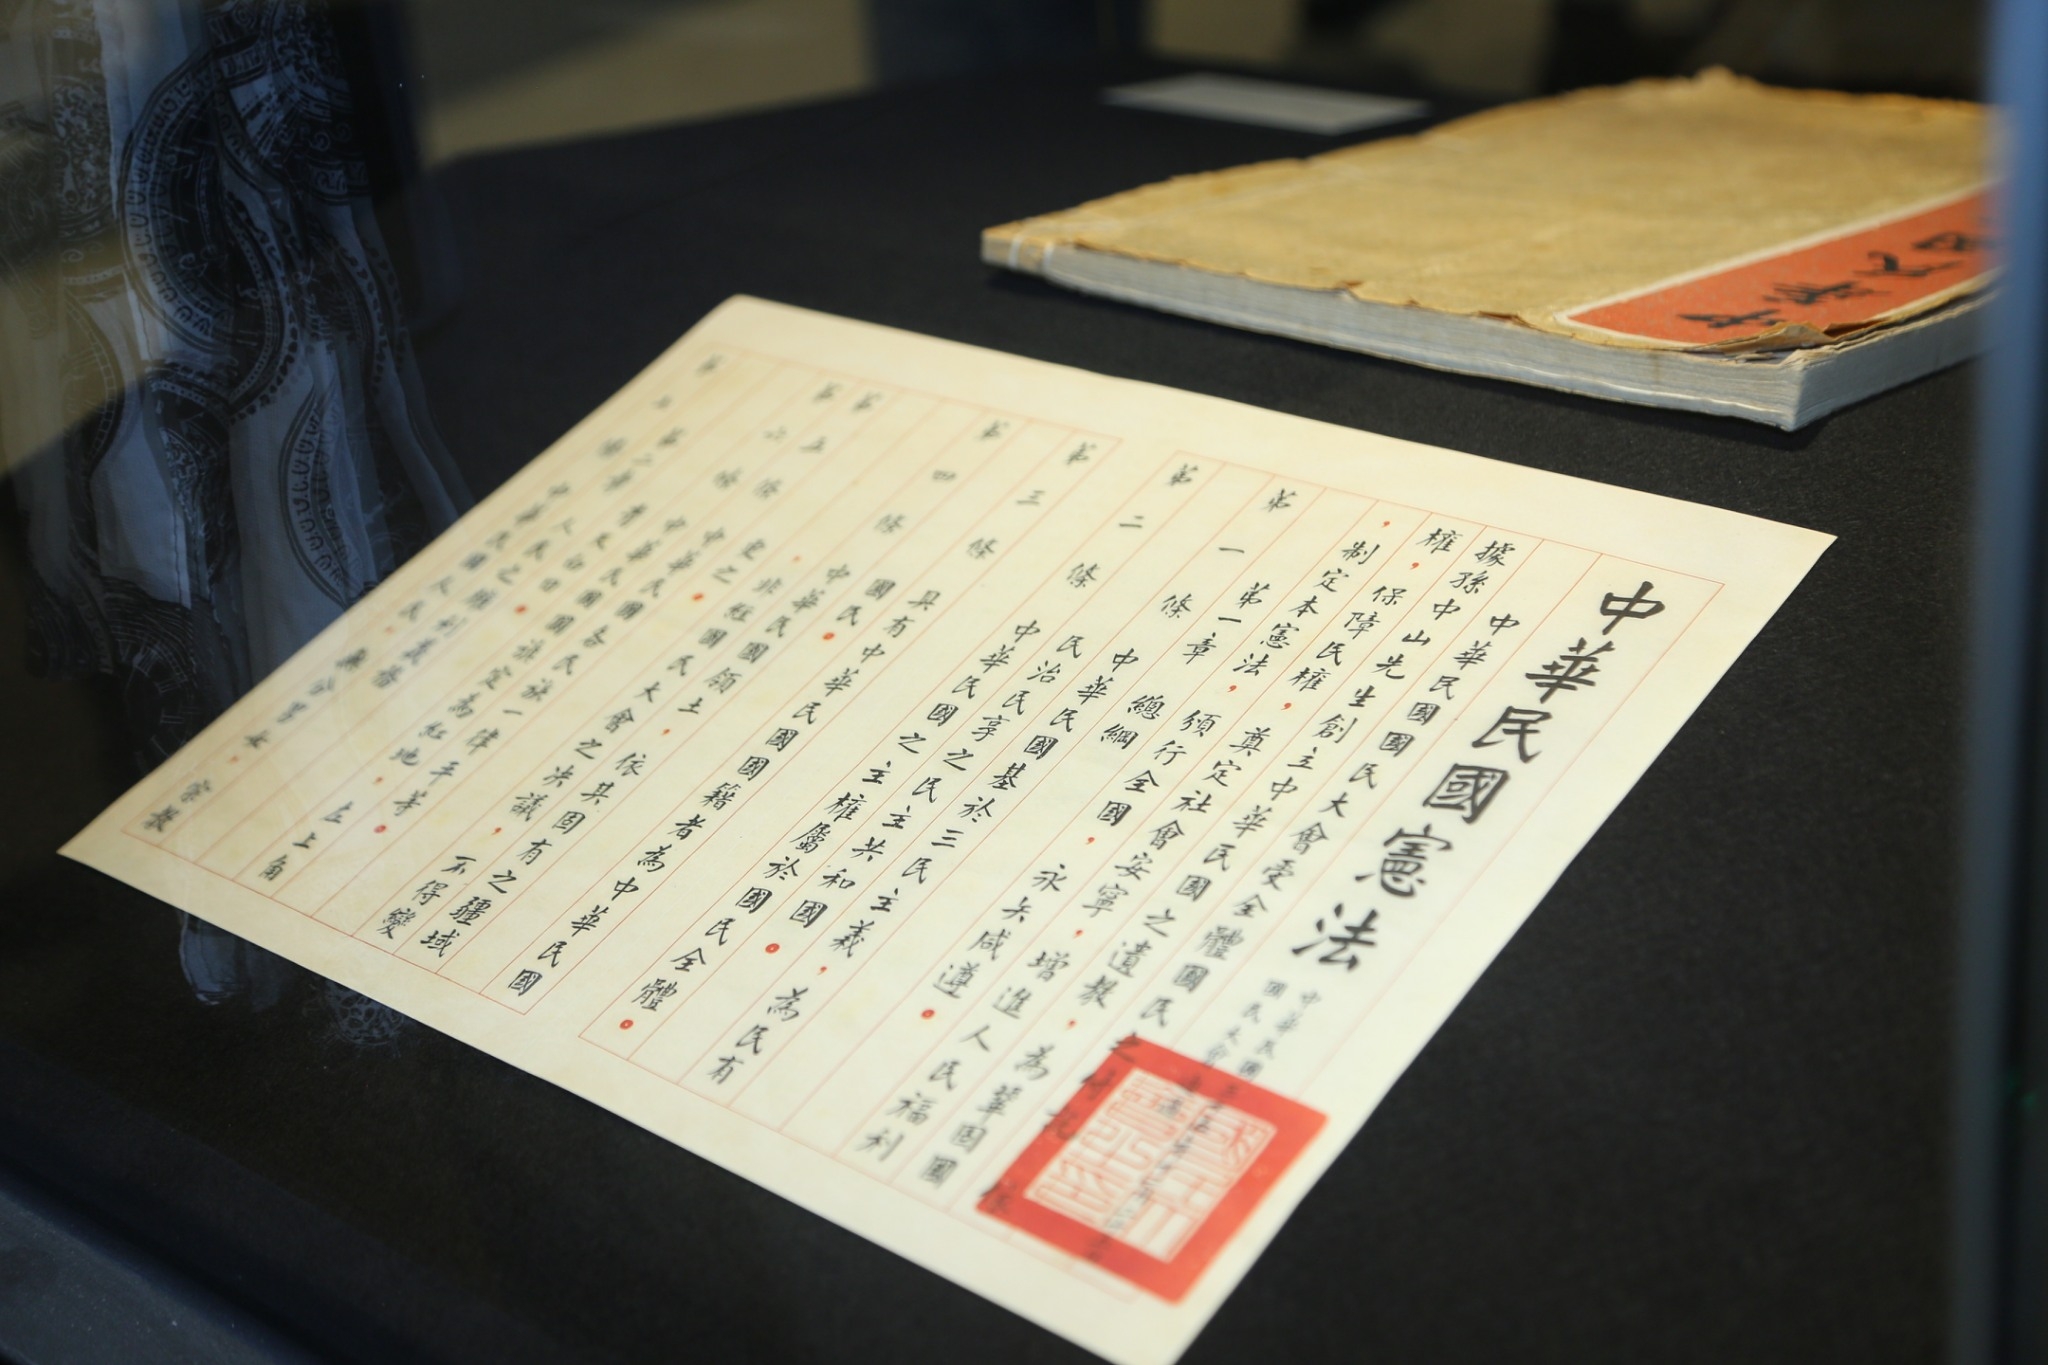 中華民國憲法
中華民國
國民大會
中華民國國民大會受全體國民之付託，依
據孫中山先生創立中華民國之遺教，為鞏固國
權，保障民權，奠定社會安寧，增進人民福利
，制定本憲法，頒行全國，永矢咸遵。
第一章 總綱
第一條 中華民國基於三民主義，為民有
民治民享之民主共和國。
第二條 中華民國之主權屬於國民全體。
第三條 具有中華民國國籍者為中華民國
國民。
第四條 中華民國領土，依其固有之疆域
，非經國民大會之決議，不得變
更之。
第五條 中華民國各民族一律平等。
第六條 中華民國國旗定為紅地，左上角
青天白日。
第二章 人民之權利義務
第七條 中華民國人民，無分男女，宗教
中華民國